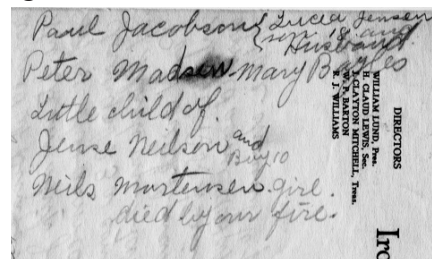 Paul Jacobson { Lucea Jensen
son 18 and
Husband.
Peter Madsen - Mary Bayles
Little child of.
Jense Neilson and
Boy 10
Neils Mortensen girl.
died by our fire.
DIRECTORS
WILLIAM LUND, Pres.
H. CLAUD LEWIS, Sec.
J. CLAYTON MITCHELL, Treas.
W. P. BARTON
R. J. WILLIAMS